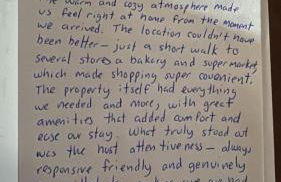 warm and cozy atmosphere made
us feel right at home from the moment
we arrived. The location couldn't have
been better - just a short walk to
several stores a bakery and supermarket,
which made shopping super covenient.
The property itself had everything
we needed and more, with great
amenities that added comfort and
ease our stay. What truly stood out
was the host attentiveness - always
responsive friendly and genuinely